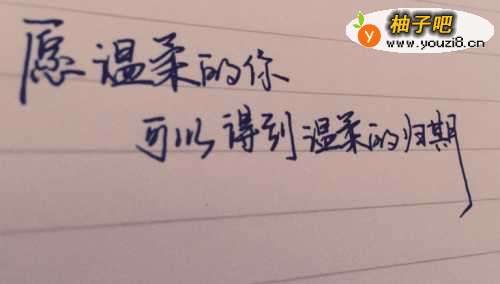 柚子吧
www.youzi8.cn
「愿温柔的你
可以得到温柔的归期」